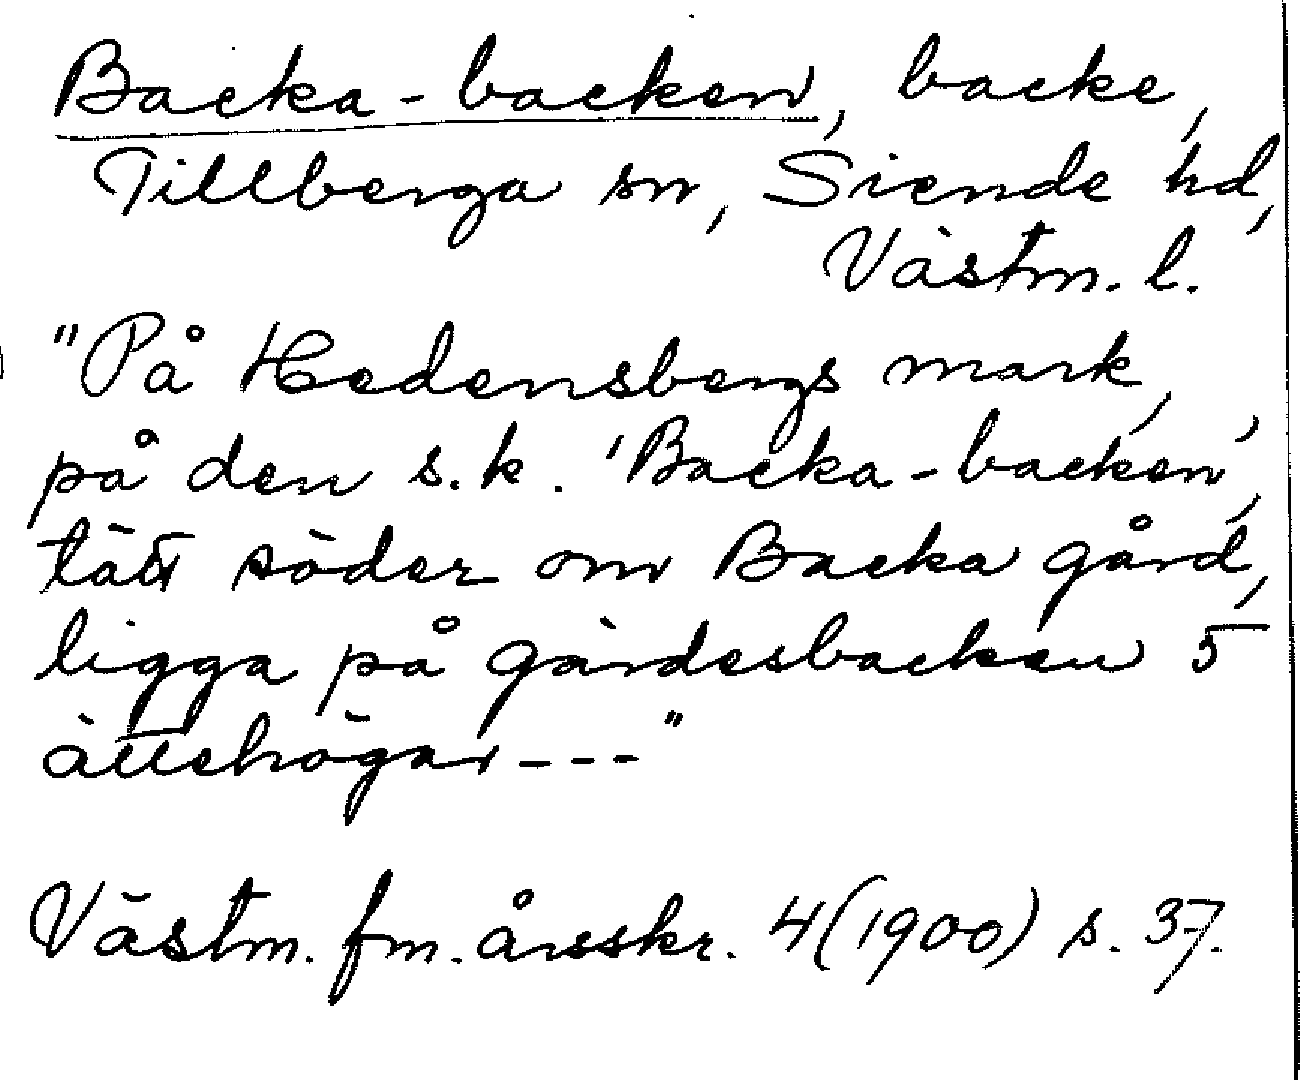 Backa-backen, backe,
Tillberga sn, Siende hd,
Västm. l.
"På Hedensbergs mark,
på den s.k. 'Backa-backen',
tätt söder om Backa gård,
ligga på gärdesbacken 5
ättehögar---"
Västm. fm. årsskr. 4(1900) s. 37.